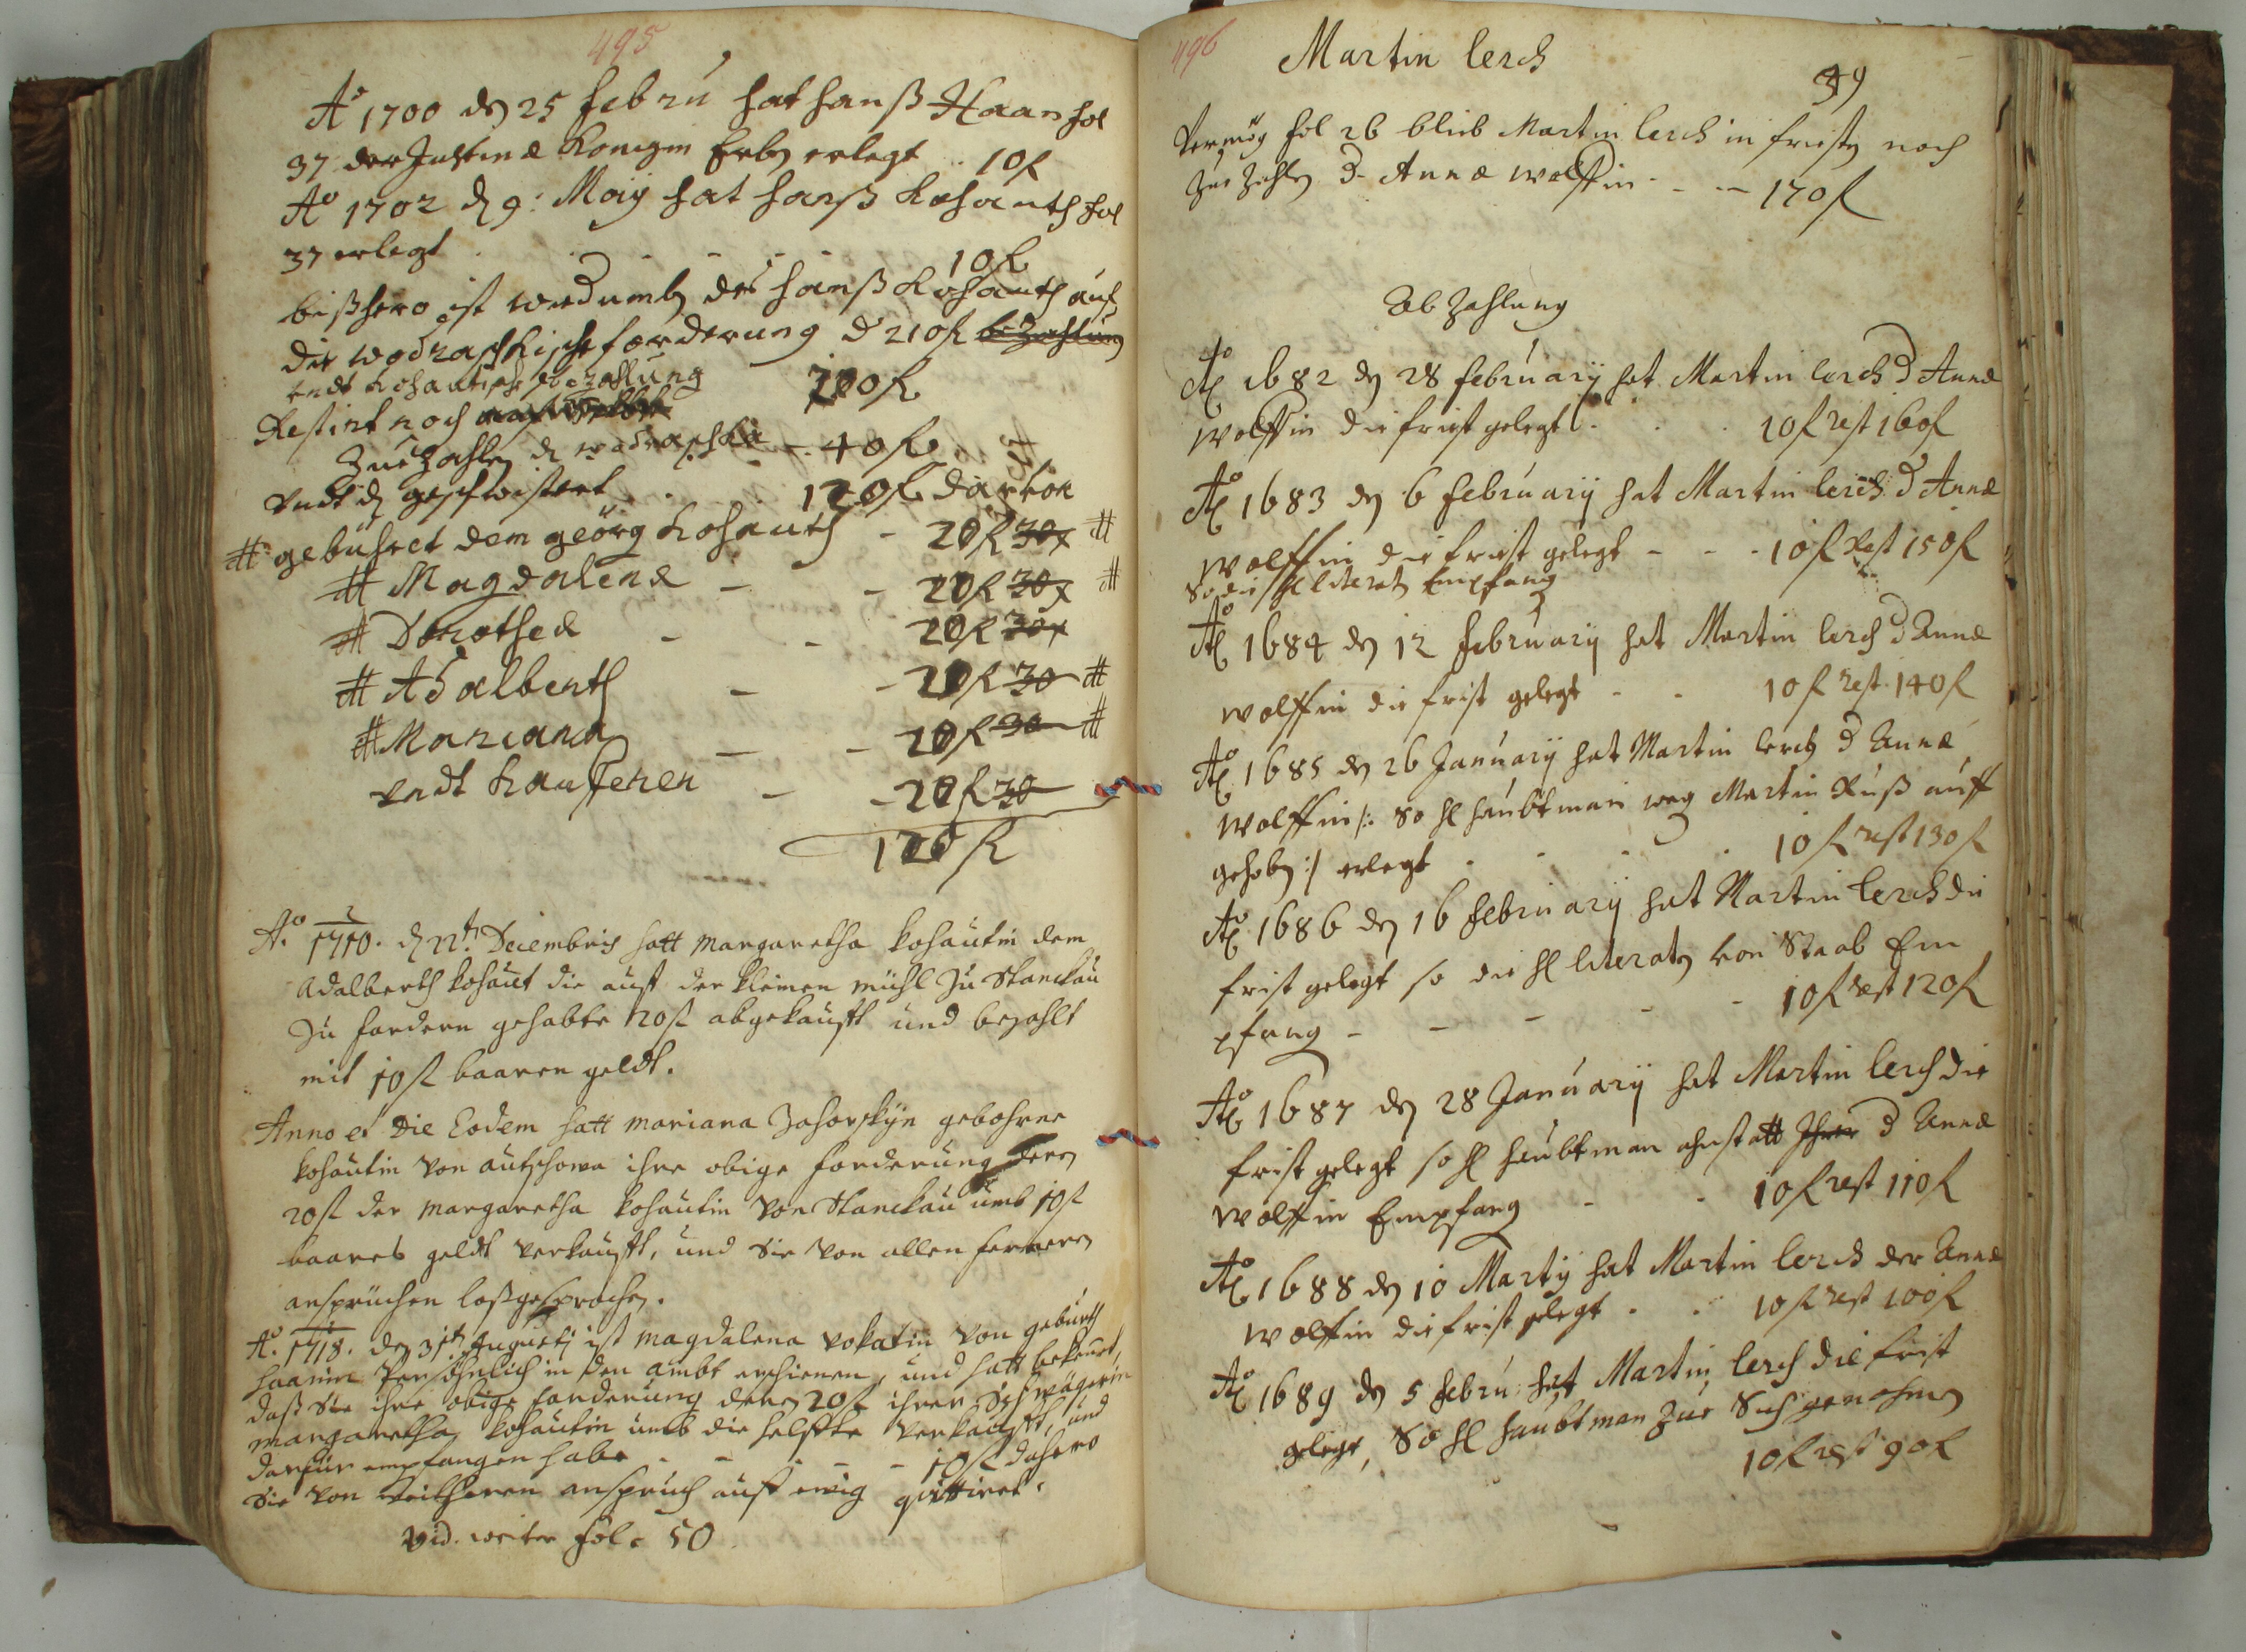 495
Aº 1700 den 25 Febru hat Hanß Haan fol
37 der Justinæ Konigin Erben erlegt .. 10 f
Aº 1702 den 9: Maij hat Hanß Kohauth fol
37 erlegt . . . . . 10 f
bißhero ist wiedumb des Hanß Kohauth auf
die wodraschkische forderung d 210 f bezahlung
endt Kohautische bezahlung
Restirt noch
Zue Zahlen d wodraschka - 40 f
Undt den geschwistert . . . 120 f darvon
# gebühret dem geörg Kohauth - 20 f 30 x #
# Magdalena - - 20 f 30 x #
# Dorothea - - 20 f 30 x
# Adalberth - - 20 f 30 #
# Mariana - - 20 f 30 #
endt - - 20 f 30
120 f
Aº. 1710. den Decembris hatt Margaretha Kohautin dem
Adalberth Kohaut die auff der kleinen mühl Zu Stanckau
Zu fordern gehabte 20 f abgekaufft und bezahlt
mit 10 f baaren geldt.
Anno et Die Eodem hatt Mariana Zahorskÿn gebohrne
Kohautin von autschowa ihre obige forderung deren
20 f der Margaretha Kohautin von Stanckau umb 10 f
baares geldt verkaufft, und Sie von allen fernern
ansprüchen loßgesprochen.
Aº. 1718. den 31ten Augusti ist Magdalena Vokatin von geburth
Persöhnlich in den ambt erschienen, und hatt bekennt,
daß Sie ihre obige forderung deren 20 f ihrer Schwägerin
Margaretha Kohautin umb die helffte verkaufft, und
darfür empfangen habe - - - 10 f dahero
Sie von weitheren anspruch auff ewig quittiret.
vid. weiter fol. 50
496
Martin Lerch
49
Vermög fol 26 blieb Martin Lerch in fristen noch
Zue Zahlen d Annæ Wolffin - - - 170 f
Abzahlung
Aº 1682 den 28 February hat Martin Lerch d Annæ
Wolffin die frist gelegt . . . 10 f rest 160 f
Aº 1683 den 6 February hat Martin Lerch d Annæ
Wolffin die frist gelegt - - - 10 f Rest 150 f
So die H Literaten Empfang
Aº 1684 den 12 February hat Martin Lerch d Annæ
Wolffin die frist gelegt - - 10 f rest 140 f
Aº 1685 den 26 January hat Martin Lerch d Annæ
Wolffin /: So H Haubtman weg Martin Ruß auff
gehoben :/ erlegt . . . . 10 f rest 130 f
Aº 1686 den 16 February hat Martin Lerch die
frist gelegt so die H Literaten von Staab Em
pfang - - - - - 10 f rest 120 f
Aº 1687 den 28 January hat Martin Lerch die
frist gelegt so H Haubtman ahnstatt Ihrer d Annæ
Wolffin Empfang - - 10 f rest 110 f
Aº 1688 den 10 Marty hat Martin Lerch der Annæ
Wolffin die frist gelegt . . 10 f rest 100 f
Aº 1689 den 5 Febru: hat Martin Lerch die frist
gelegt, So H Haubtman Zue Sich genohmen
10 f rest 90 f